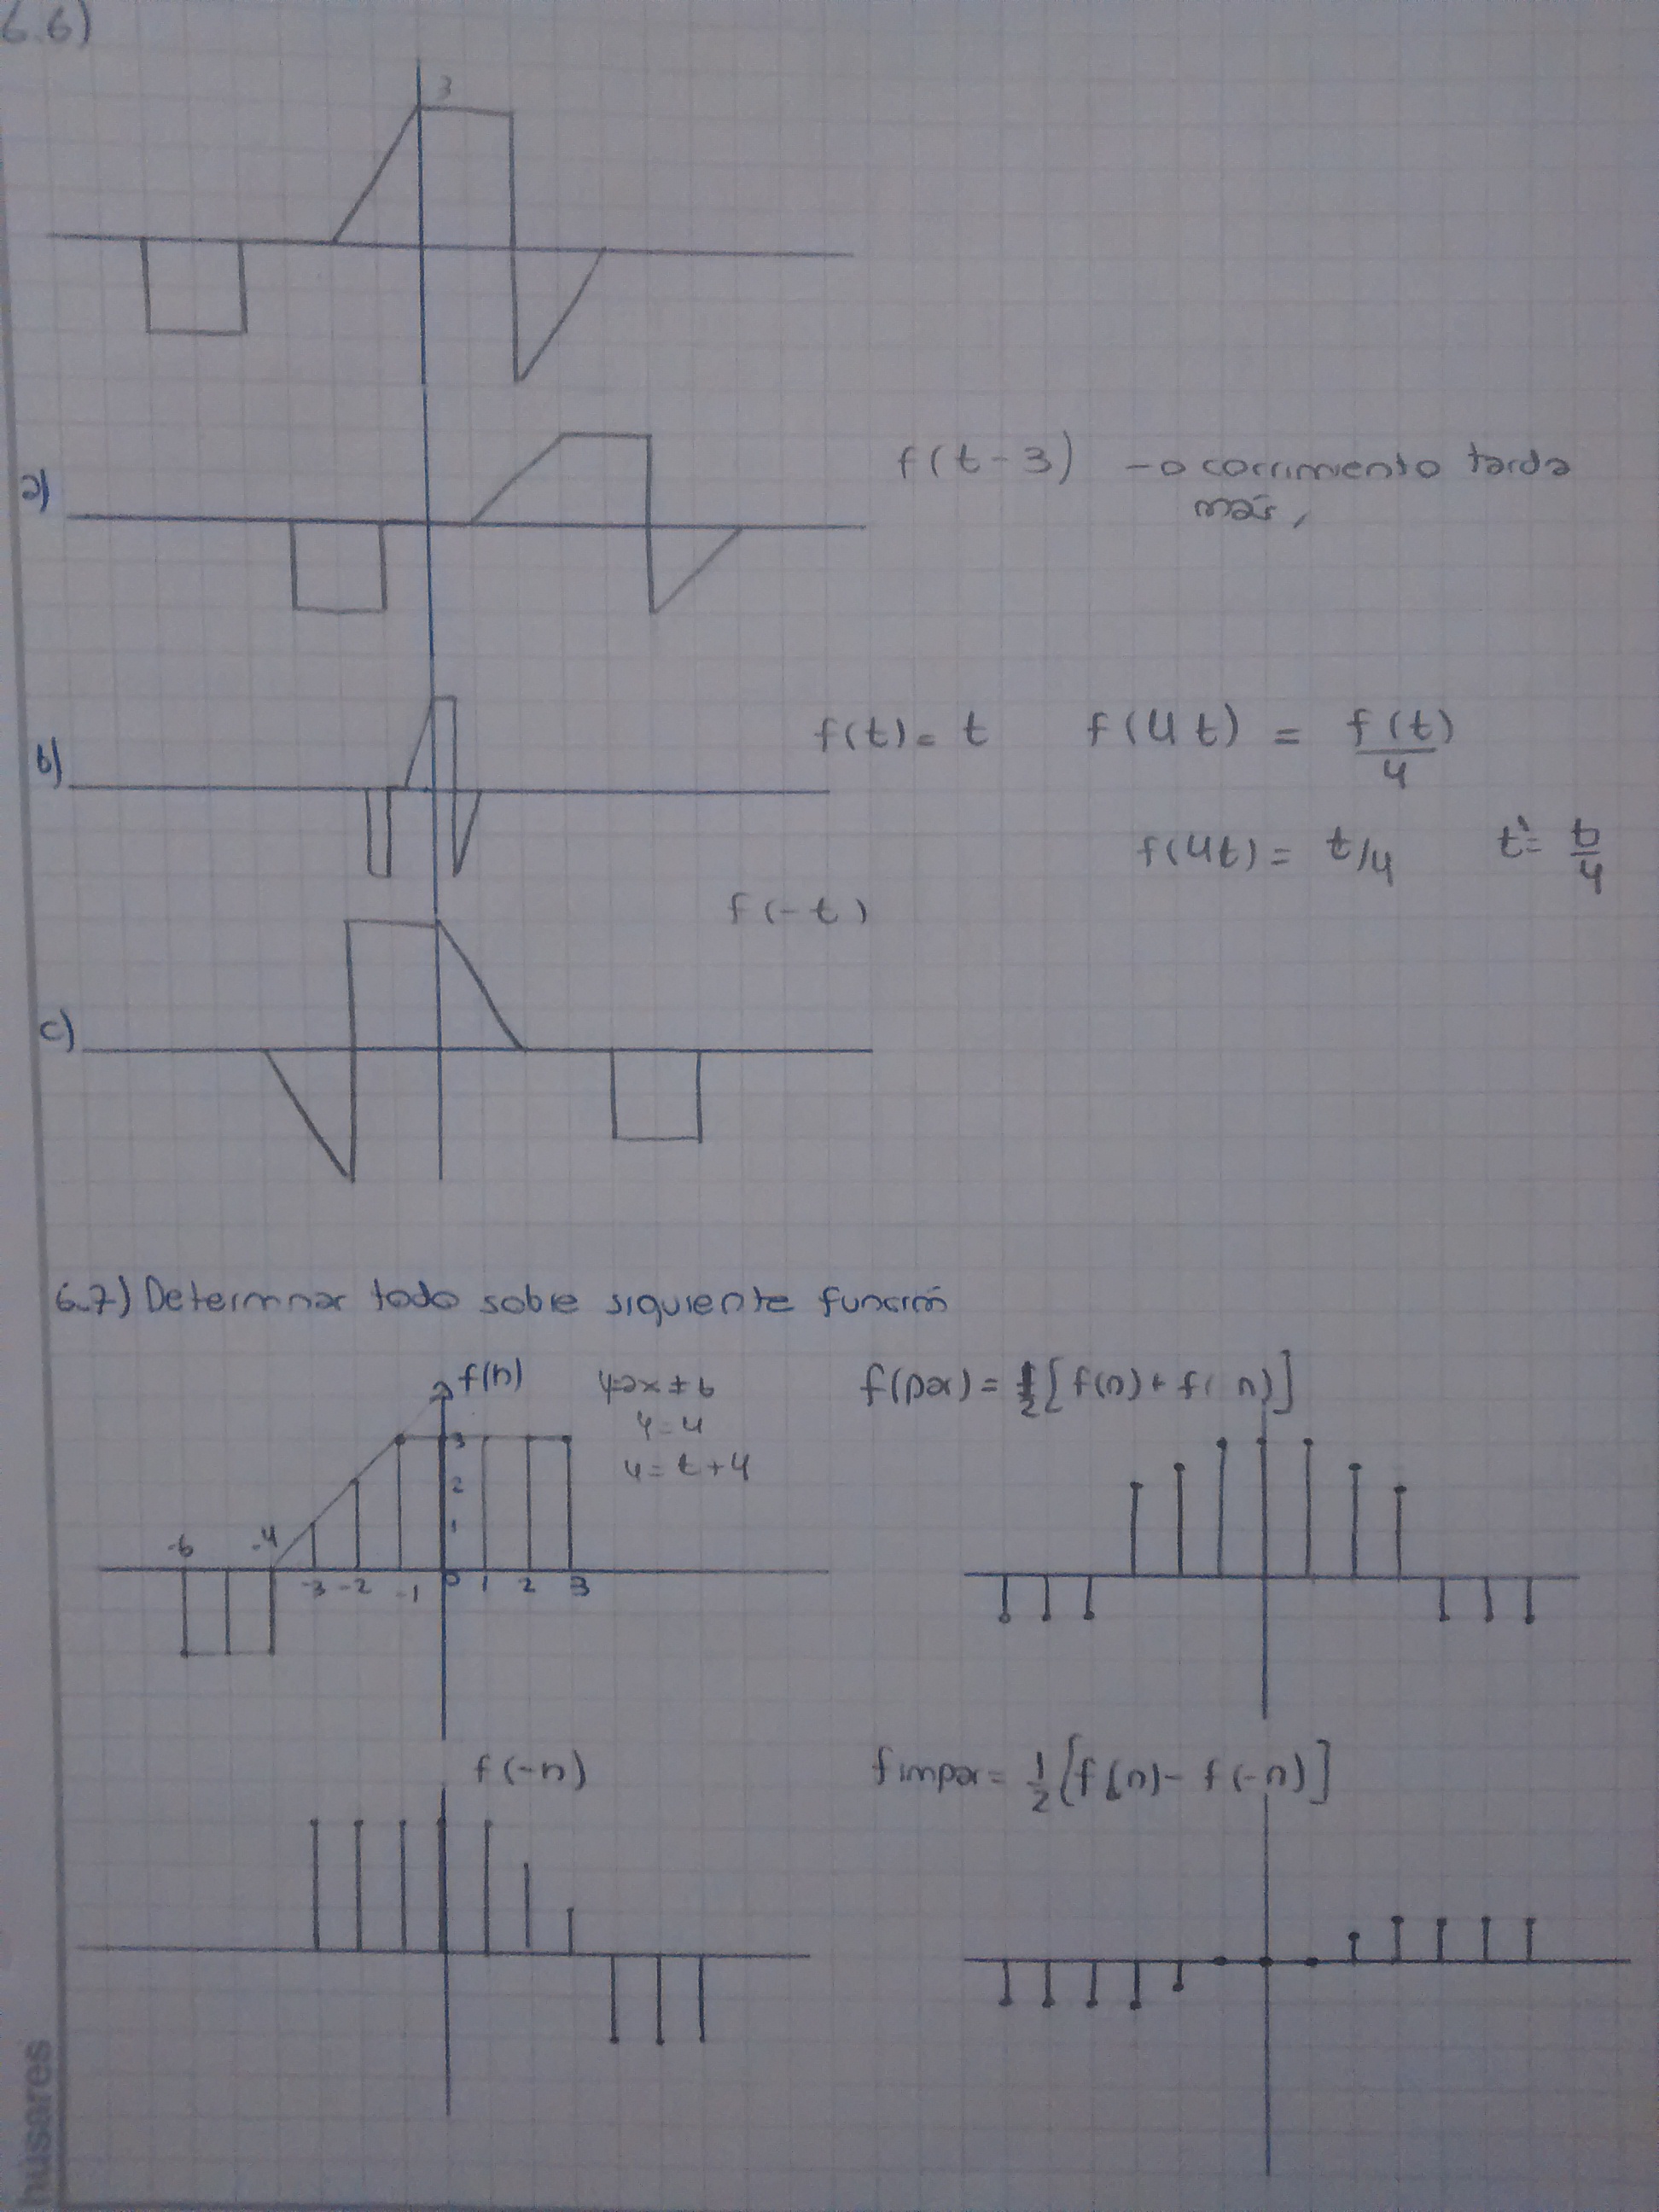 6.6)
3
a)
f(t-3) -o corrimiento tarda
más,
b)
f(t) = t f(4t) = f(t)/4
f(4t) = t/4 t' = t/4
f(-t)
c)
6.7) Determinar todo sobre siguiente función
f(n)
y=ax+b
y=4
y=t+4
3
2
1
-6 -4
-3 -2 -1 0 1 2 3
f(par) = 1/2 [f(n)+f( n)]
f(-n)
fimpar = 1/2 [f(n)- f(-n)]
husares